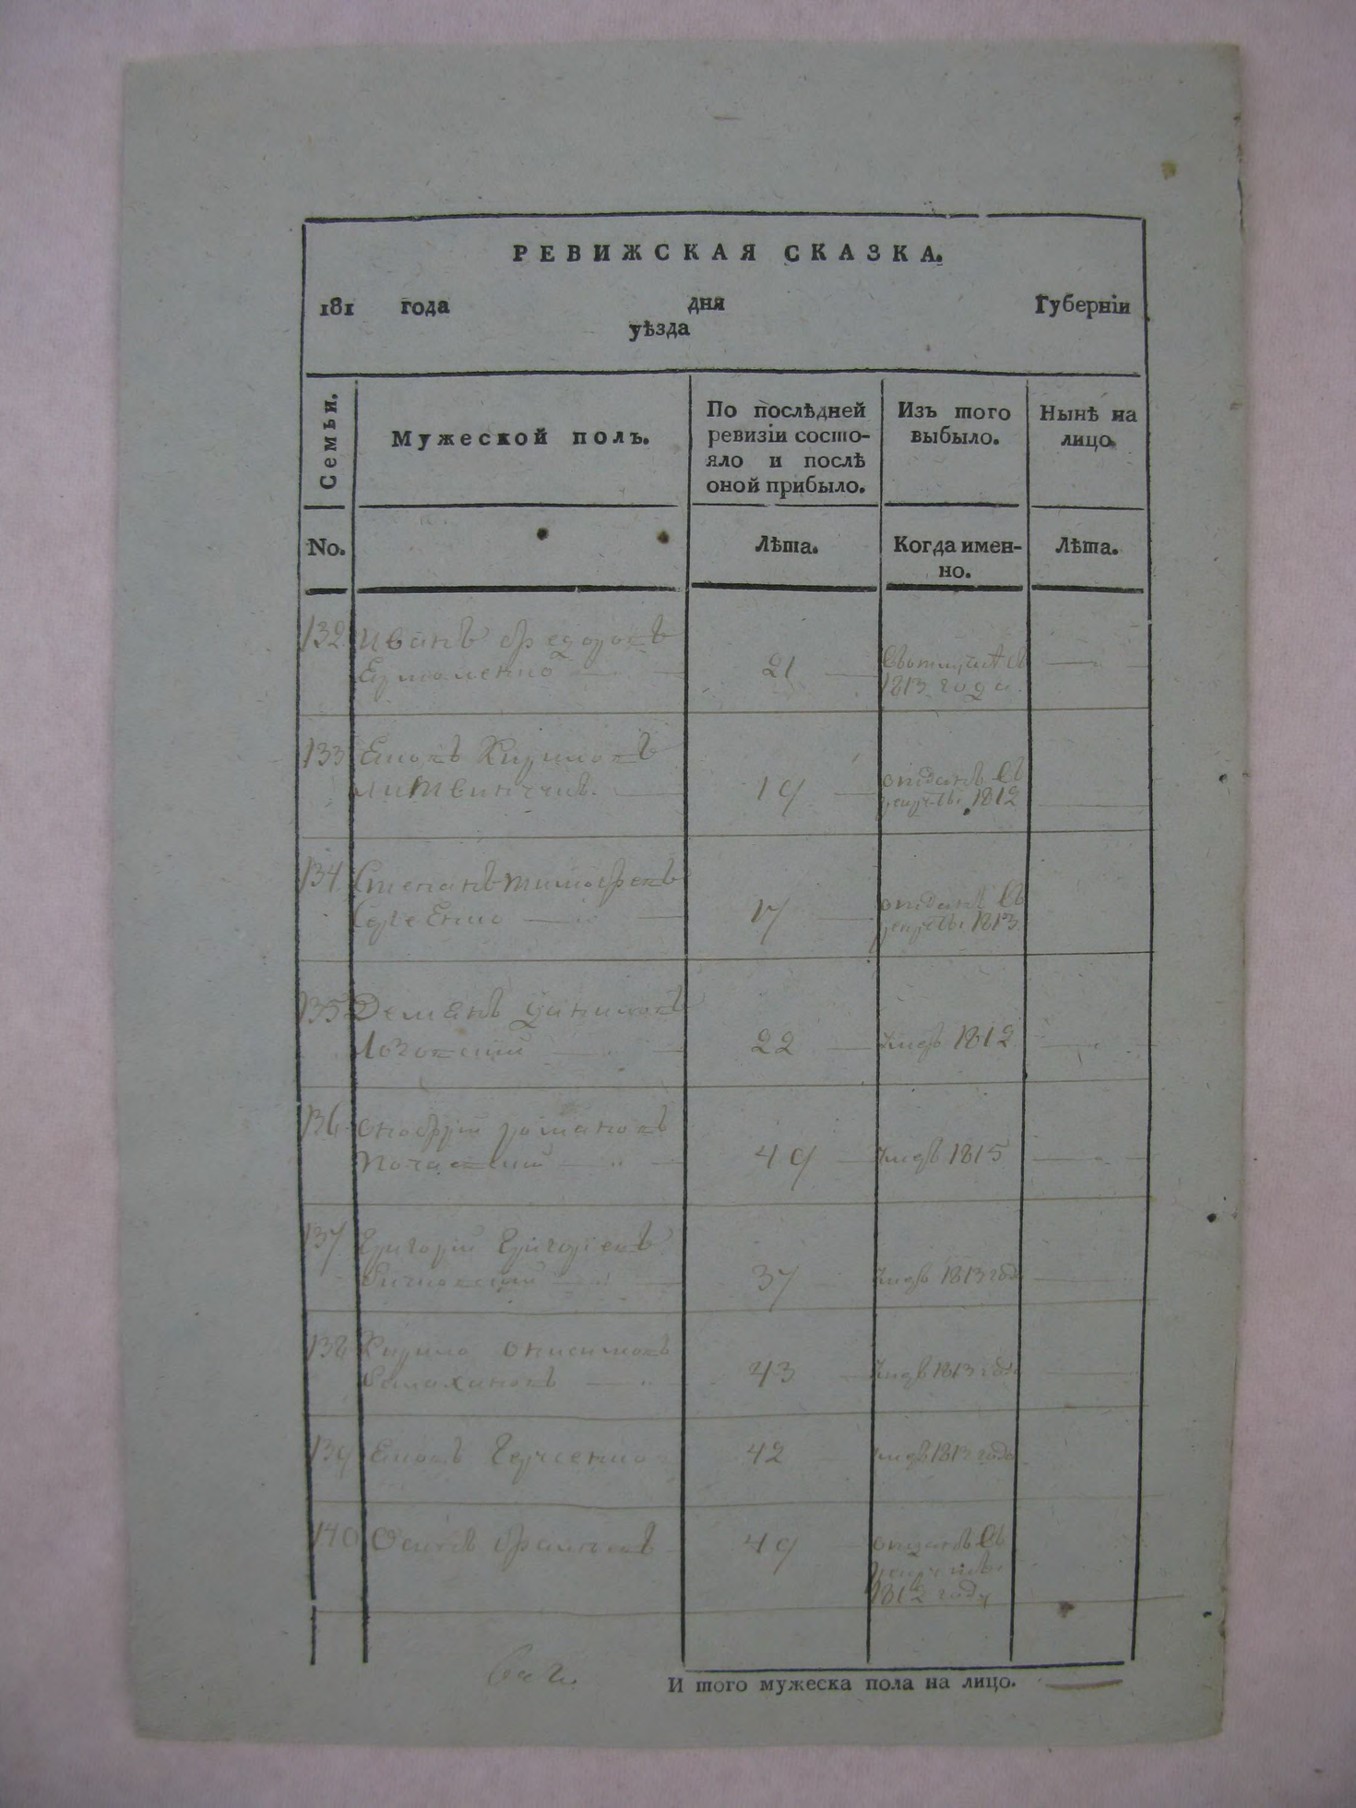 РЕВИЖСКАЯ СКАЗКА.
181 года дня Губерніи
уѣзда
Семьи.
Мужеской полъ.
По послѣдней
ревизіи состо-
яло и послѣ
оной прибыло.
Изъ того
выбыло.
Нынѣ на
лицо.
No.
Лѣта.
Когда имен-
но.
Лѣта.
132 Иванъ Федоровъ
Ермоленко 21
1813 года.
133 Кириловъ
19 отданъ въ
рекруты 1812
134 Степанъ Тимофеевъ
Сергеенко 17 отданъ въ
рекруты 1813
135 Демянъ Даниловъ
22 умре 1812
136 Онофрій Романовъ
49 умре 1815
137 Григорій Григоріевъ
37 умре 1813 года
138 Кирило Онисимовъ
43 умре 1813 года
139 42 умре 1813 года
140 Осипъ 49 отданъ въ
рекруты
1812 году
И того мужеска пола на лицо.